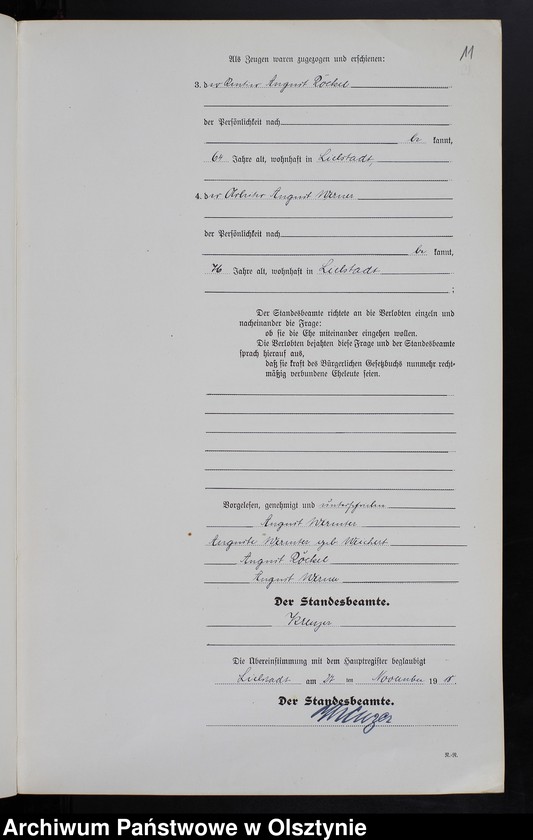 11
Als Zeugen waren zugezogen und erschienen:
3. der Rentier August Röckel
der Persönlichkeit nach
be kannt,
64 Jahre alt, wohnhaft in Liebstadt,
4. der Arbeiter August Werner
der Persönlichkeit nach
be kannt,
76 Jahre alt, wohnhaft in Liebstadt
;
Der Standesbeamte richtete an die Verlobten einzeln und
nacheinander die Frage:
ob sie die Ehe miteinander eingehen wollen.
Die Verlobten bejahten diese Frage und der Standesbeamte
sprach hierauf aus,
daß sie kraft des Bürgerlichen Gesetzbuchs nunmehr recht-
mäßig verbundene Eheleute seien.
Vorgelesen, genehmigt und unterschrieben
August Wermter
Auguste Wermter geb Weichert
August Röckel
August Werner
Der Standesbeamte.
Kreuzer
Die Übereinstimmung mit dem Hauptregister beglaubigt
Liebstadt am 27 ten November 19 18.
Der Standesbeamte.
Kreuzer
R.-R.
Archiwum Państwowe w Olsztynie